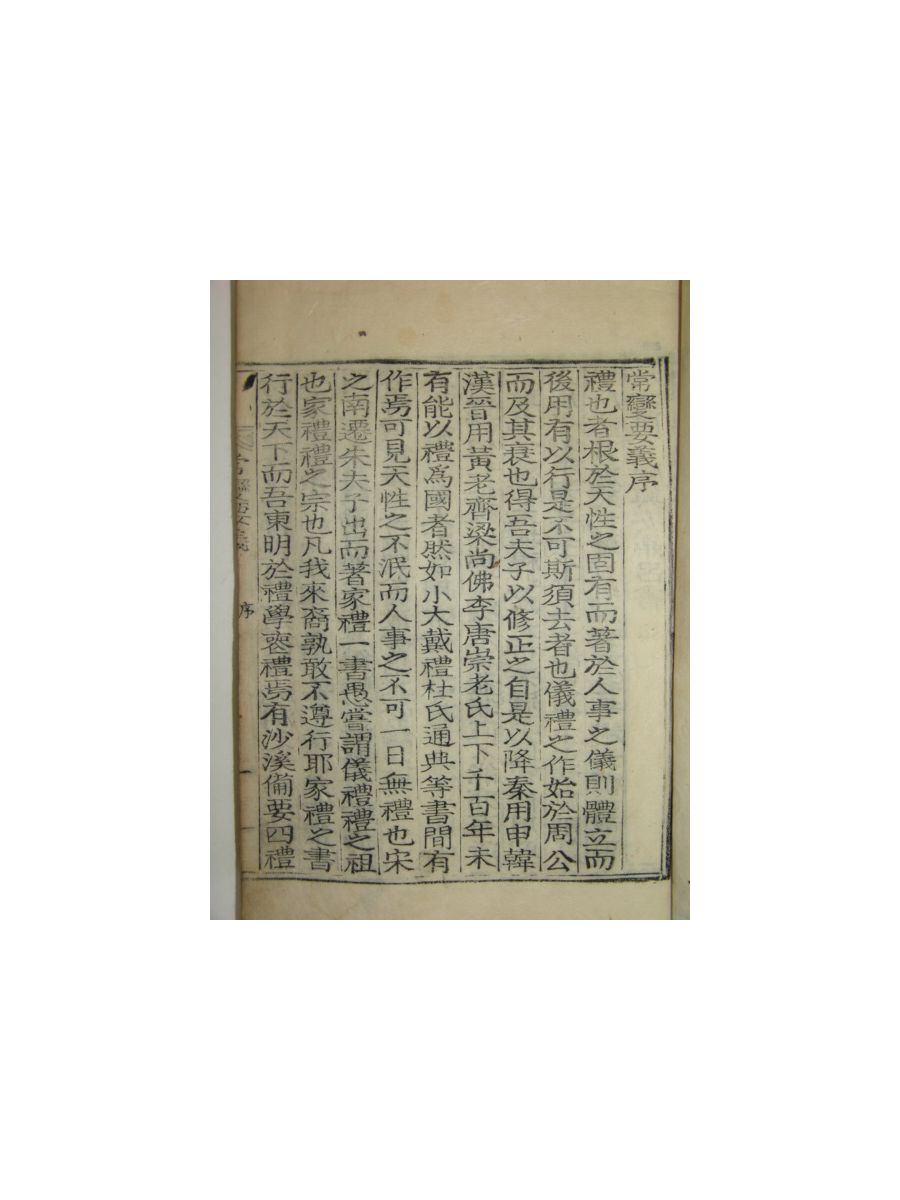 常變要義序
禮也者根於天性之固有而著於人事之儀則體立而
後用有以行是不可斯須去者也儀禮之作始於周公
而及其衰也得吾夫子以修正之自是以降秦用申韓
漢晉用黃老齊梁尚佛李唐崇老氏上下千百年未
有能以禮爲國者然如小大戴禮杜氏通典等書間有
作焉可見天性之不泯而人事之不可一日無禮也宋
之南遷朱夫子出而著家禮一書愚嘗謂儀禮禮之祖
也家禮禮之宗也凡我來裔孰敢不遵行耶家禮之書
行於天下而吾東明於禮學喪禮焉有沙溪備要四禮
常變要義
序
一